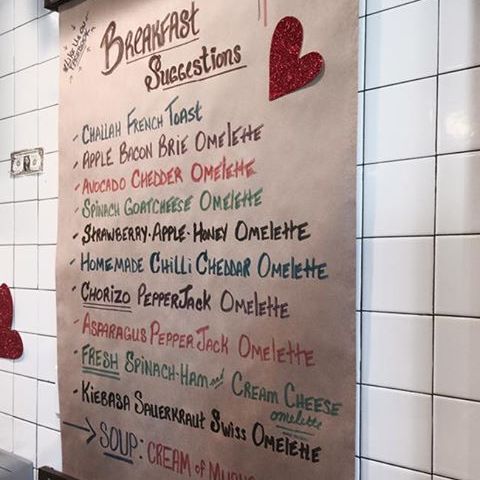 Like us on
Facebook
Breakfast
Suggestions
- Challah French Toast
- Apple Bacon Brie Omelette
- Avocado Chedder Omelette
- Spinach Goatcheese Omelette
- Strawberry-Apple-Honey Omelette
- Homemade Chilli Cheddar Omelette
- Chorizo PepperJack Omelette
- Asparagus Pepper Jack Omelette
- Fresh Spinach-Ham and Cream Cheese
omelette
- Kiebasa Sauerkraut Swiss Omelette
→ Soup: Cream of